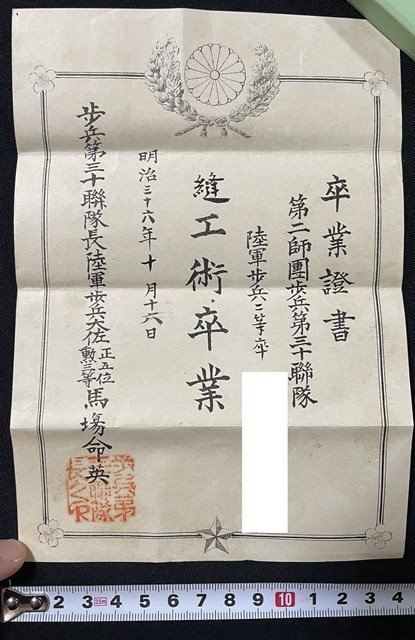 卒業證書
第二師團歩兵第三十聯隊
陸軍歩兵二等卒
縫工術卒業
明治三十六年十月十六日
歩兵第三十聯隊長陸軍歩兵大佐正五位勲三等馬場命英
2 3 4 5 6 7 8 9 10 1 2 3 4